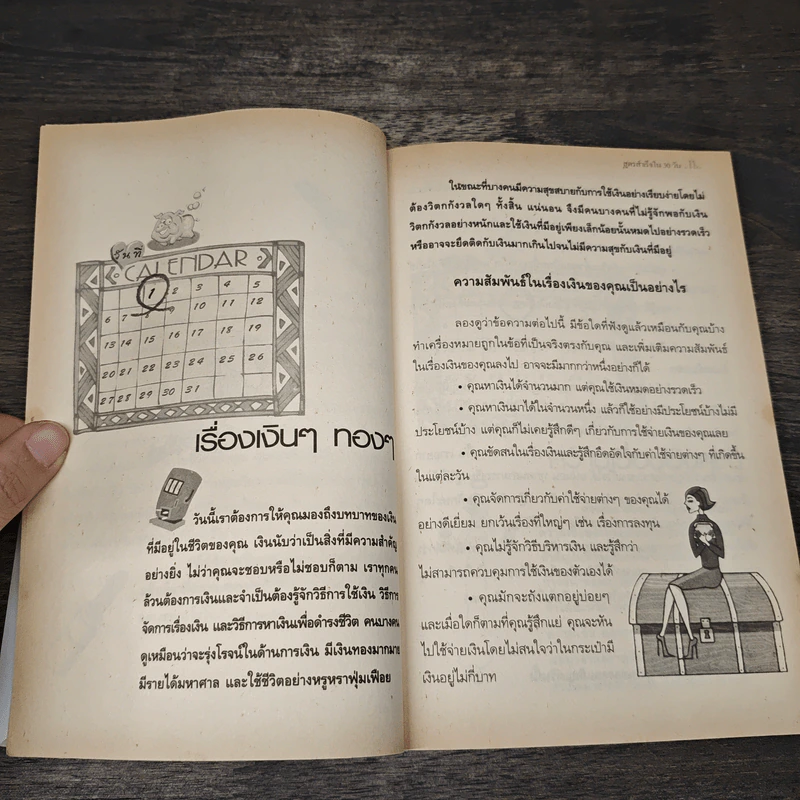 วันที่
CALENDAR
1 2 3 4 5
6 7 9 10 11 12
13 14 15 16 17 18 19
20 21 22 23 24 25 26
27 28 29 30 31
เรื่องเงินๆ ทองๆ
วันนี้เราต้องการให้คุณมองถึงบทบาทของเงิน
ที่มีอยู่ในชีวิตของคุณ เงินนับว่าเป็นสิ่งที่มีความสำคัญ
อย่างยิ่ง ไม่ว่าคุณจะชอบหรือไม่ชอบก็ตาม เราทุกคน
ล้วนต้องการเงินและจำเป็นต้องรู้จักวิธีการใช้เงิน วิธีการ
จัดการเรื่องเงิน และวิธีการหาเงินเพื่อดำรงชีวิต คนบางคน
ดูเหมือนว่าจะรุ่งโรจน์ในด้านการเงิน มีเงินทองมากมาย
มีรายได้มหาศาล และใช้ชีวิตอย่างหรูหราฟุ่มเฟือย
สูตรสำเร็จใน 30 วัน
ในขณะที่บางคนมีความสุขสบายกับการใช้เงินอย่างเรียบง่ายโดยไม่
ต้องวิตกกังวลใดๆ ทั้งสิ้น แน่นอน จึงมีคนบางคนที่ไม่รู้จักพอกับเงิน
วิตกกังวลอย่างหนักและใช้เงินที่มีอยู่เพียงเล็กน้อยนั้นหมดไปอย่างรวดเร็ว
หรืออาจจะยึดติดกับเงินมากเกินไปจนไม่มีความสุขกับเงินที่มีอยู่
ความสัมพันธ์ในเรื่องเงินของคุณเป็นอย่างไร
ลองดูว่าข้อความต่อไปนี้ มีข้อใดที่ฟังดูแล้วเหมือนกับคุณบ้าง
ทำเครื่องหมายถูกในข้อที่เป็นจริงตรงกับคุณ และเพิ่มเติมความสัมพันธ์
ในเรื่องเงินของคุณลงไป อาจจะมีมากกว่าหนึ่งอย่างก็ได้
• คุณหาเงินได้จำนวนมาก แต่คุณใช้เงินหมดอย่างรวดเร็ว
• คุณหาเงินมาได้ในจำนวนหนึ่ง แล้วก็ใช้อย่างมีประโยชน์บ้างไม่มี
ประโยชน์บ้าง แต่คุณก็ไม่เคยรู้สึกดีๆ เกี่ยวกับการใช้จ่ายเงินของคุณเลย
• คุณขัดสนในเรื่องเงินและรู้สึกอึดอัดใจกับค่าใช้จ่ายต่างๆ ที่เกิดขึ้น
ในแต่ละวัน
• คุณจัดการเกี่ยวกับค่าใช้จ่ายต่างๆ ของคุณได้
อย่างดีเยี่ยม ยกเว้นเรื่องที่ใหญ่ๆ เช่น เรื่องการลงทุน
• คุณไม่รู้จักวิธีบริหารเงิน และรู้สึกว่า
ไม่สามารถควบคุมการใช้เงินของตัวเองได้
• คุณมักจะถังแตกอยู่บ่อยๆ
และเมื่อใดก็ตามที่คุณรู้สึกแย่ คุณจะหัน
ไปใช้จ่ายเงินโดยไม่สนใจว่าในกระเป๋ามี
เงินอยู่ไม่กี่บาท